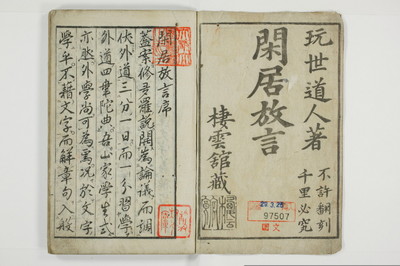 玩世道人著
閑居放言
不許翻刻
千里必究
棲雲館藏
97507
閑居放言序
蓋案修多羅說開為論議而調
伏外道三分一日而一分習學
外道四韋陀典吾山家學生式
亦熟外學尚可為焉況於文字
學乎不藉文字而解章句入般